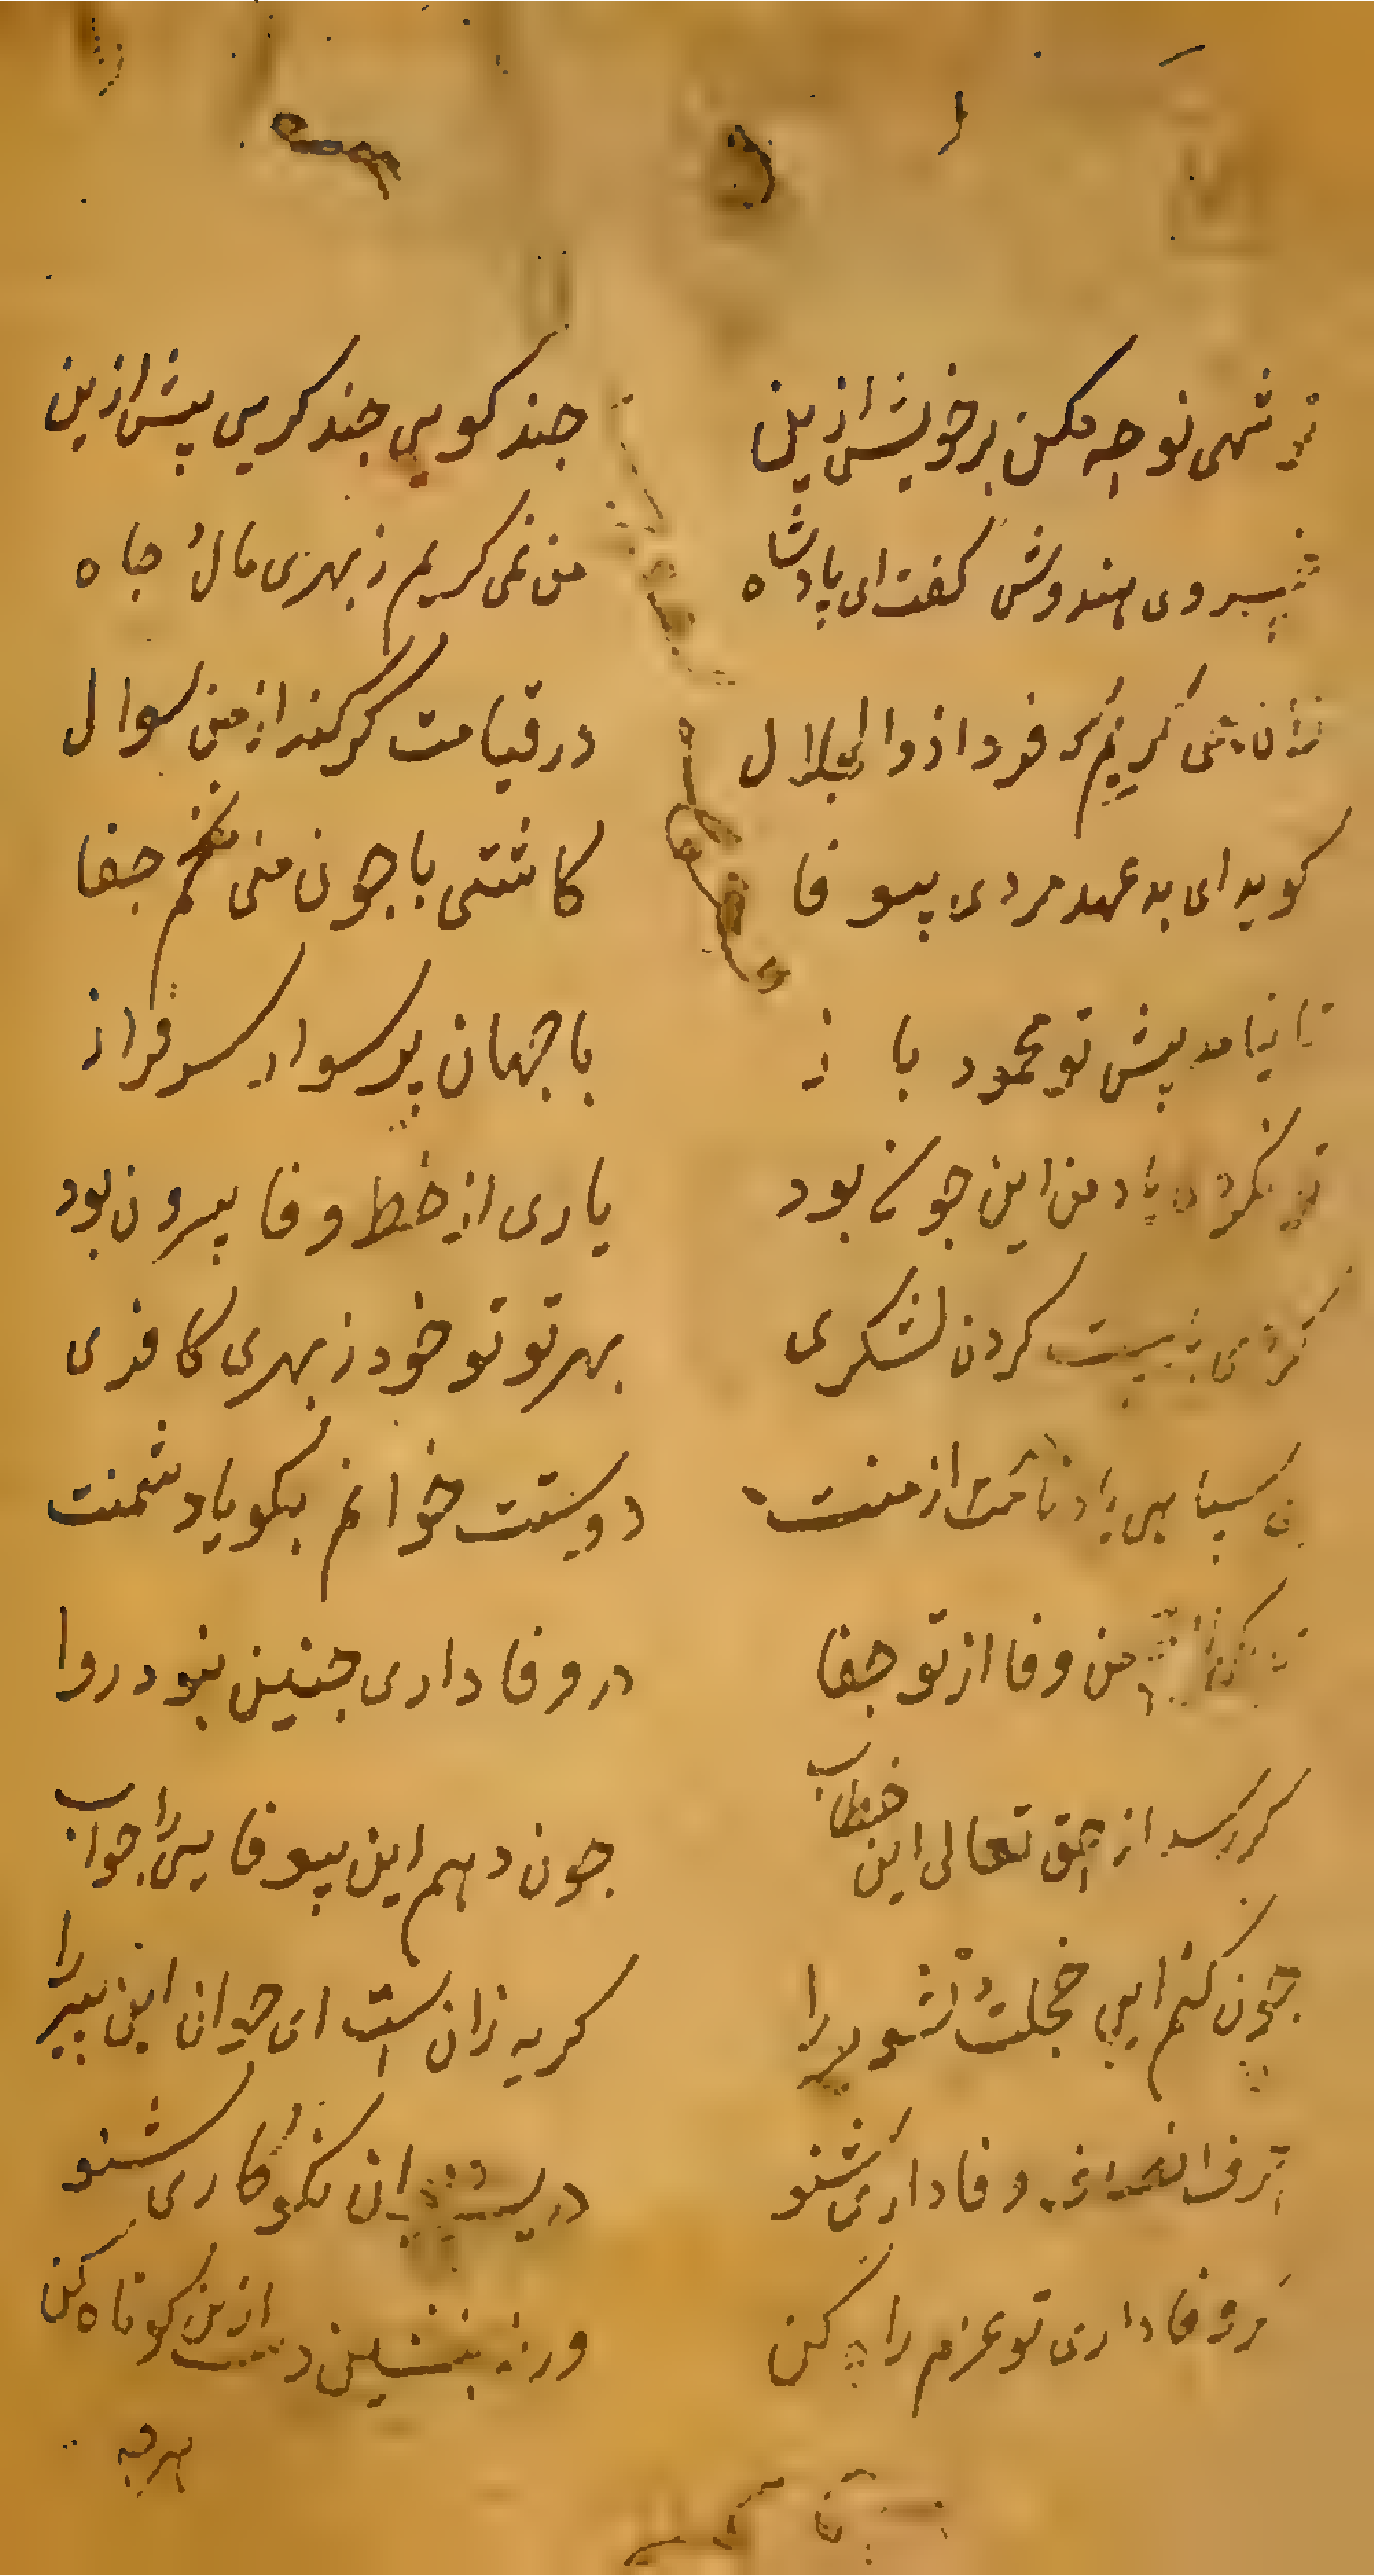 تو شهی نوحه مکن بر خویش ازین جند کویی جند کریی پیش ازین
خسروی هندوش کفت ای پادشاه من نمی کریم ز بهری مال و جاه
زان نمی کریم که فردا ذوالجلال در قیامت کر کند از من سوال
کوید ای بد عهد مردی بیوفا کاشتی با جون منی تخم جفا
تا نیامد پیش تو محمود باز با جهان پر سوار سرفراز
تو نکردی یاد من این جون بود یاری از خط وفا بیرون بود
کردن لشکری بهر تو تو خود ز بهری کافری
سپاهی یاد نامد از منت دوستت خوانم بکو یا دشمنت
من وفا از تو جفا در وفاداری جنین نبود روا
کر رسد از حق تعالی این خطاب جون دهم این بیوفایی را جواب
جون کنم این خجلت و تشویر را کریه زان است ای جوان این پیر را
حرف انصاف و وفاداری شنو درس دیوان نکوکاری شنو
کر وفاداری تو عزم راه کن ورنه بنشین دست ازین کوتاه کن
هرچه